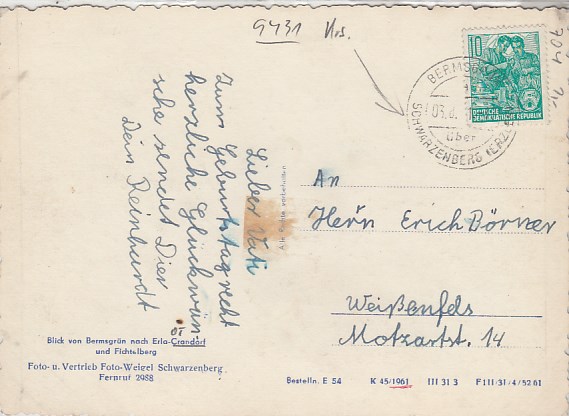 9431 Krs.
704
7,-
10
DEUTSCHE
DEMOKRATISCHE REPUBLIK
BERMSGRÜN
03.6.
über
SCHWARZENBERG (ERZGEB
Lieber Vati
Zum Geburtstag recht
herzliche Glückwün
sche sendet Dier
Dein Reinhardt
An
Herrn Erich Börner
Weißenfels
Mozartst. 14
Alle Rechte vorbehalten
OT
Blick von Bermsgrün nach Erla-Crandorf
und Fichtelberg
Foto- u. Vertrieb Foto-Weigel Schwarzenberg
Fernruf 2988
Bestelln. E 54 K 45/1961 III 31 3 F 111/31/4/52 61